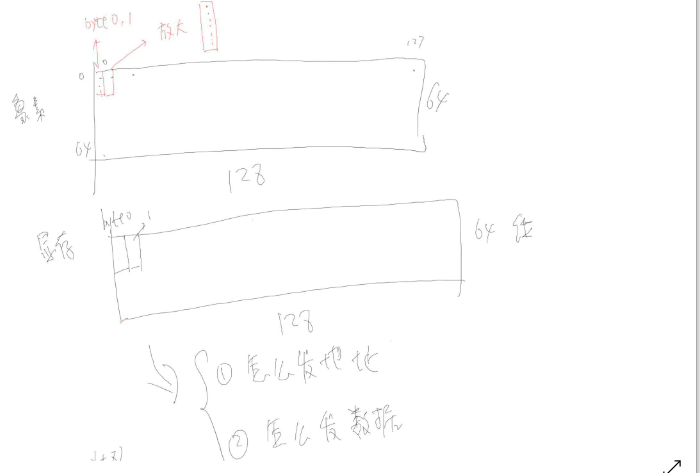 byte0,1
放大
0
0
127
像素
64
64
128
byte0
1
显存
64 位
128
① 怎么发地址
② 怎么发数据